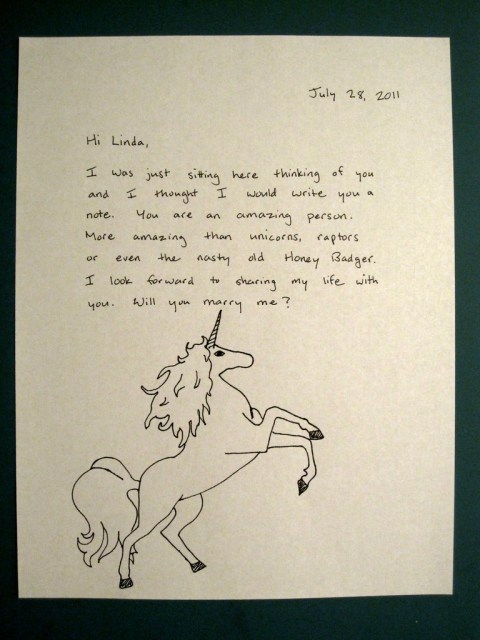 July 28, 2011
Hi Linda,
I was just sitting here thinking of you
and I thought I would write you a
note. You are an amazing person.
More amazing than unicorns, raptors
or even the nasty old Honey Badger.
I look forward to sharing my life with
you. Will you marry me?